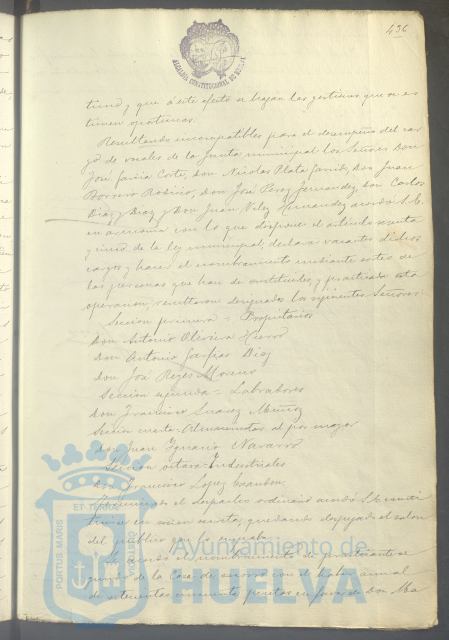 436
ALCALDIA CONSTITUCIONAL DE HUELVA
tiend y que á este efecto se hagan las gestiones que se es
timen oportunas.
Resultando incompatibles para el desempeño del car
go de vocales de la Junta municipal los Señores Don
José García Corte, Don Nicolás Plata Garrido, Don Juan
Borrero Robino, Don José Perez Fernandez, Don Carlos
Diaz y Diaz y Don Juan Velez Hernandez acordó S.E.
en armonía con lo que dispone el artículo sesenta
y cinco de la ley municipal, declarar vacantes dichos
cargos y hacer el nombramiento mediante sorteo de
las personas que han de sustituirles, y practicada esta
operacion, resultaron designados los siguientes Señores:
Sección primera = Propietarios
Don Antonio Oliveira Hierro
Don Antonio Garfias Diaz
Don José Reyes Moreno
Sección segunda = Labradores
Don Francisco Suarez Muñoz
Sección cuarta = Almacenistas al por mayor
Don Juan Ignacio Navarro
Sección octava = Industriales
Don Francisco Lopez
el despacho ordinario acordó S.E. consti
tuirse en sesión secreta, quedando despejado el salón
del público que lo ocupaba.
Se acordó el nombramiento de practicante se
gundo de la Casa de socorro con el haber anual
de setecientas cincuenta pesetas en favor de Don Ma
ET TERRÆ
PORTUS MARIS
CUSTODIO
Ayuntamiento de
HUELVA